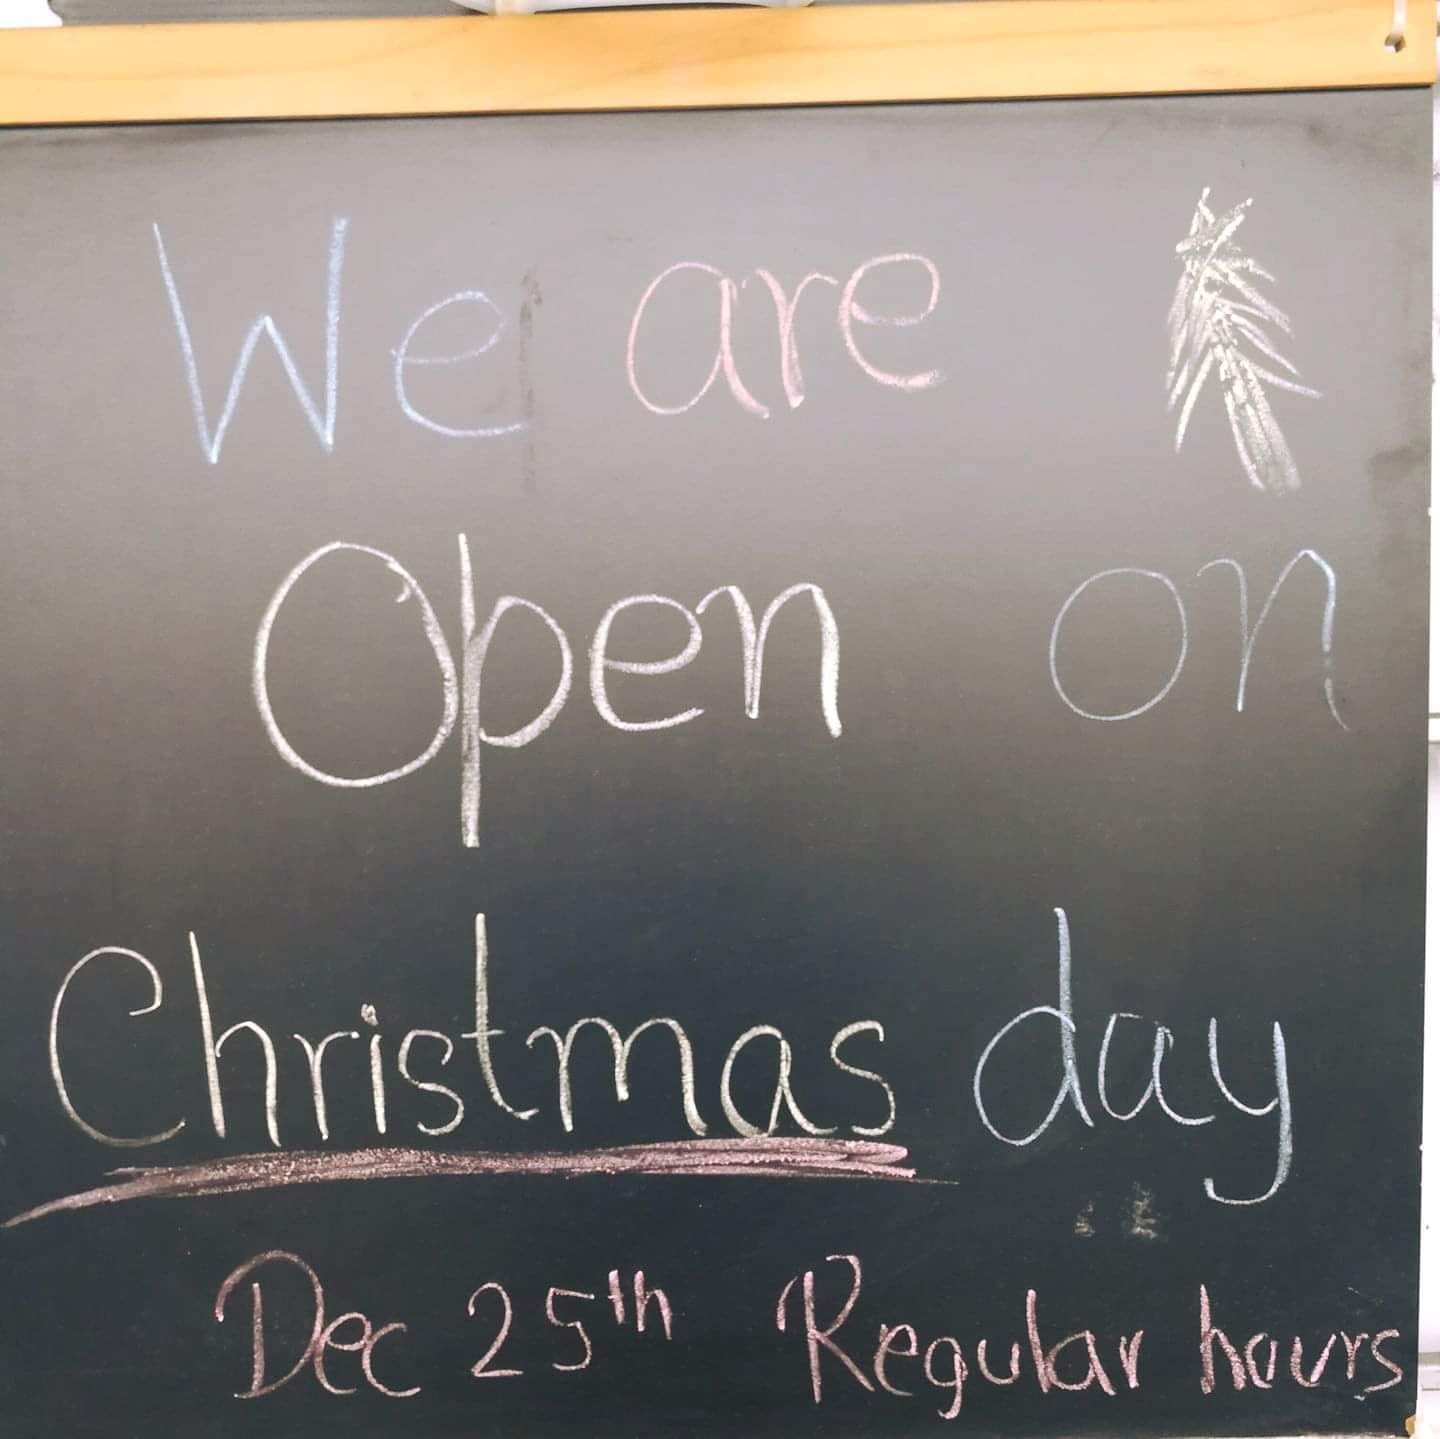 We are
Open on
Christmas day
Dec 25th Regular hours